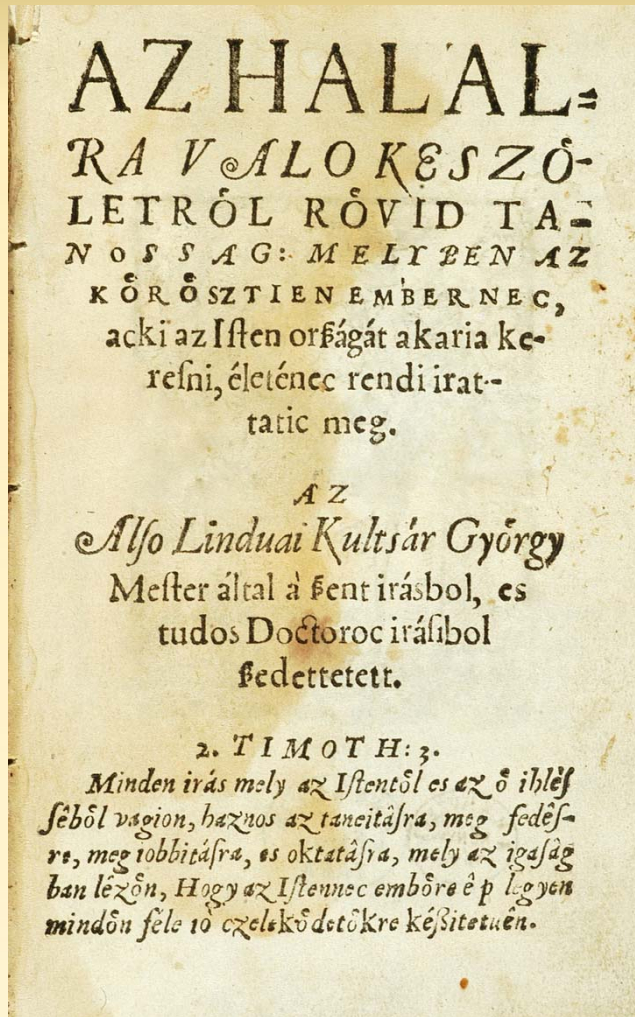 AZ HALAL=
RA VALO KESZŐ-
LETRŐL RŐVID TA=
NOSSAG: MELYBEN AZ
KŐRŐSZTIEN EMBERNEC,
acki az Iſten orßágát akaria ke-
reſni, életénec rendi irat-
tatic meg.
AZ
Alſo Linduai Kultsár Győrgy
Meſter által à ßent irásbol, es
tudos Doctoroc iráſibol
ßedettetett.
2. TIMOTH: 3.
Minden irás mely az Iſtentől es az ő ihlêſ
ſêből vagion, haznos az taneitâſra, meg fedêſ-
re, meg iobbitâſra, es oktatâſra, mely az igaſâg
ban lêzőn, Hogy az Iſtennec embőre ê p legyen
mindőn fêle iò czelekődetőkre kéßitetuên.